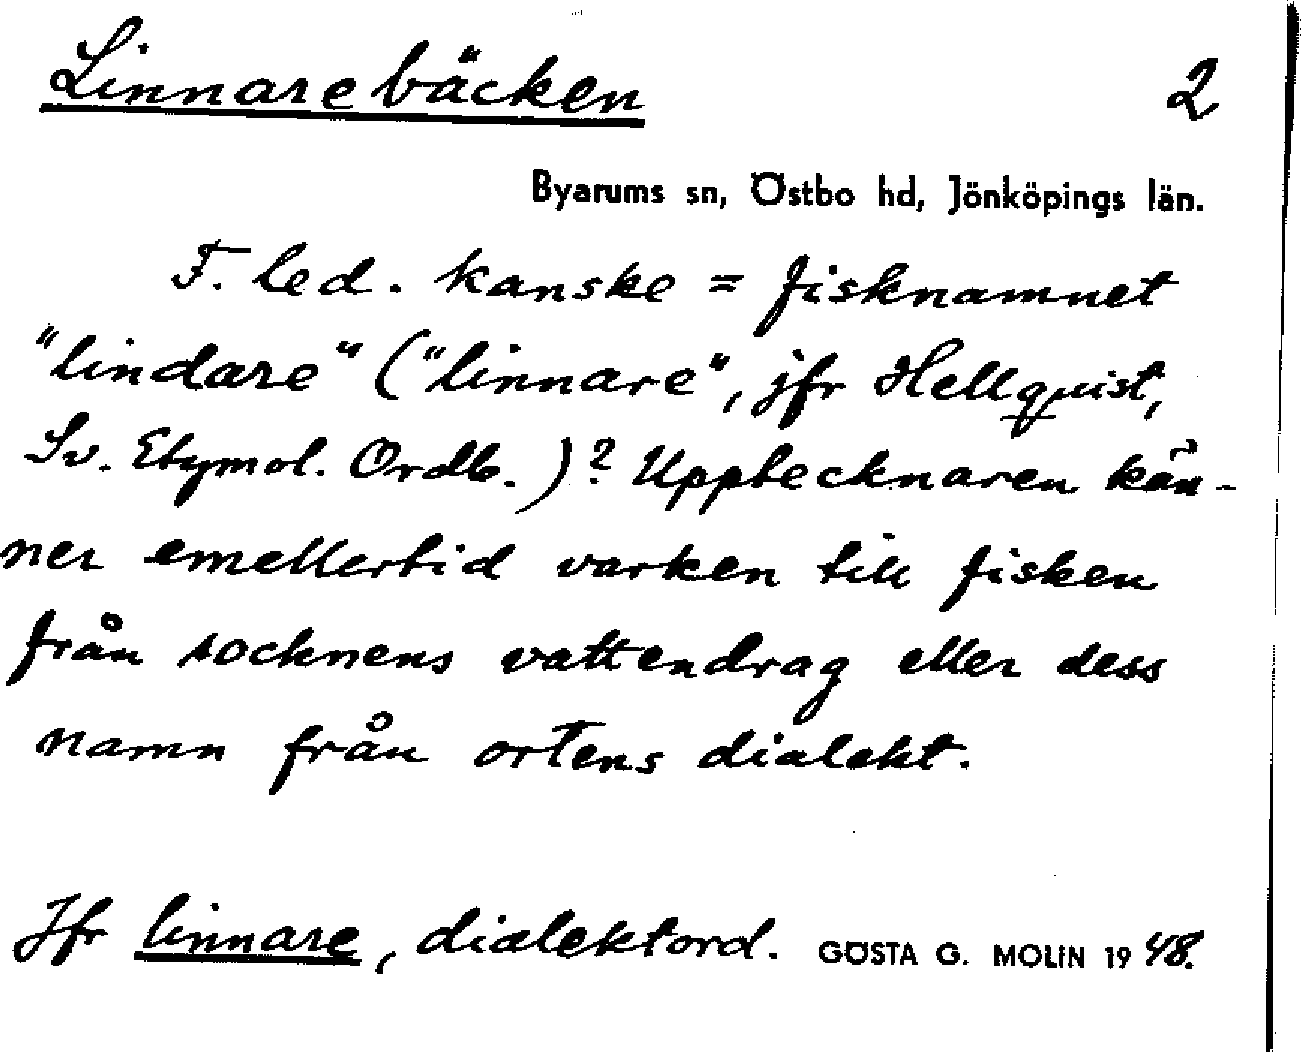 Linnarebäcken 2
Byarums sn, Östbo hd, Jönköpings län.
F. led. kanske = fisknamnet
"lindare" ("linnare", jfr Hellquist,
Sv. Etymol. Ordb.)? Upptecknaren kän-
ner emellertid varken till fisken
från socknens vattendrag eller dess
namn från ortens dialekt.
Jfr linnare, dialektord. GÖSTA G. MOLIN 1948.